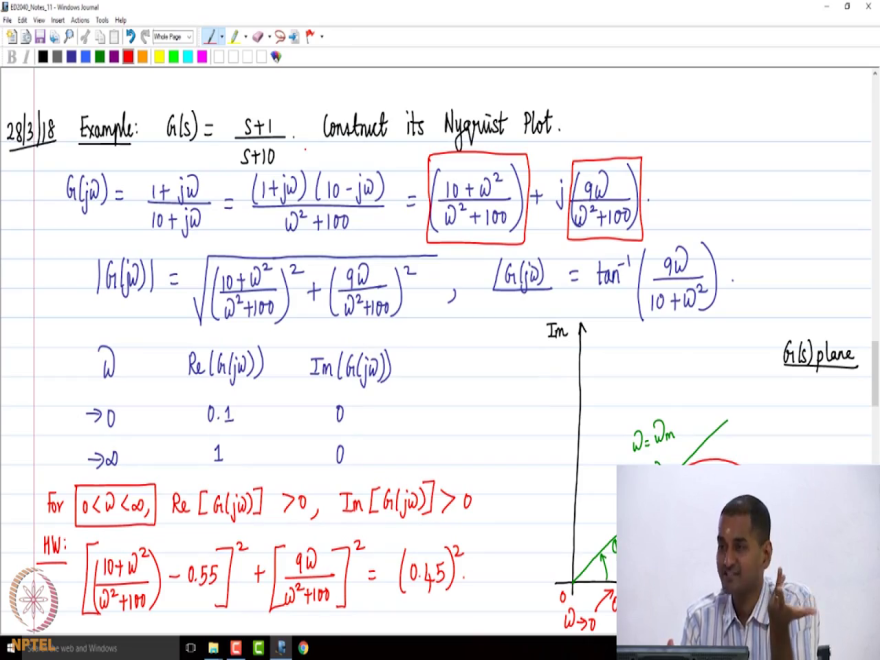 ED2040_Notes_11 - Windows Journal
File Edit View Insert Actions Tools Help
Whole Page
B I
28/3/18 Example: G(s) = (s+1)/(s+10). Construct its Nyquist Plot.
G(jω) = (1+jω)/(10+jω) = (1+jω)(10-jω)/(ω²+100) = ((10+ω²)/(ω²+100)) + j(9ω/(ω²+100)).
|G(jω)| = √(((10+ω²)/(ω²+100))² + (9ω/(ω²+100))²), ∠G(jω) = tan⁻¹(9ω/(10+ω²)).
Im
G(s) plane
ω Re(G(jω)) Im(G(jω))
→0 0.1 0
→∞ 1 0
ω=ωm
For 0<ω<∞, Re[G(jω)] >0, Im[G(jω)] >0
HW:
[((10+ω²)/(ω²+100)) - 0.55]² + [9ω/(ω²+100)]² = (0.45)².
0
ω→0
NPTEL
the web and Windows